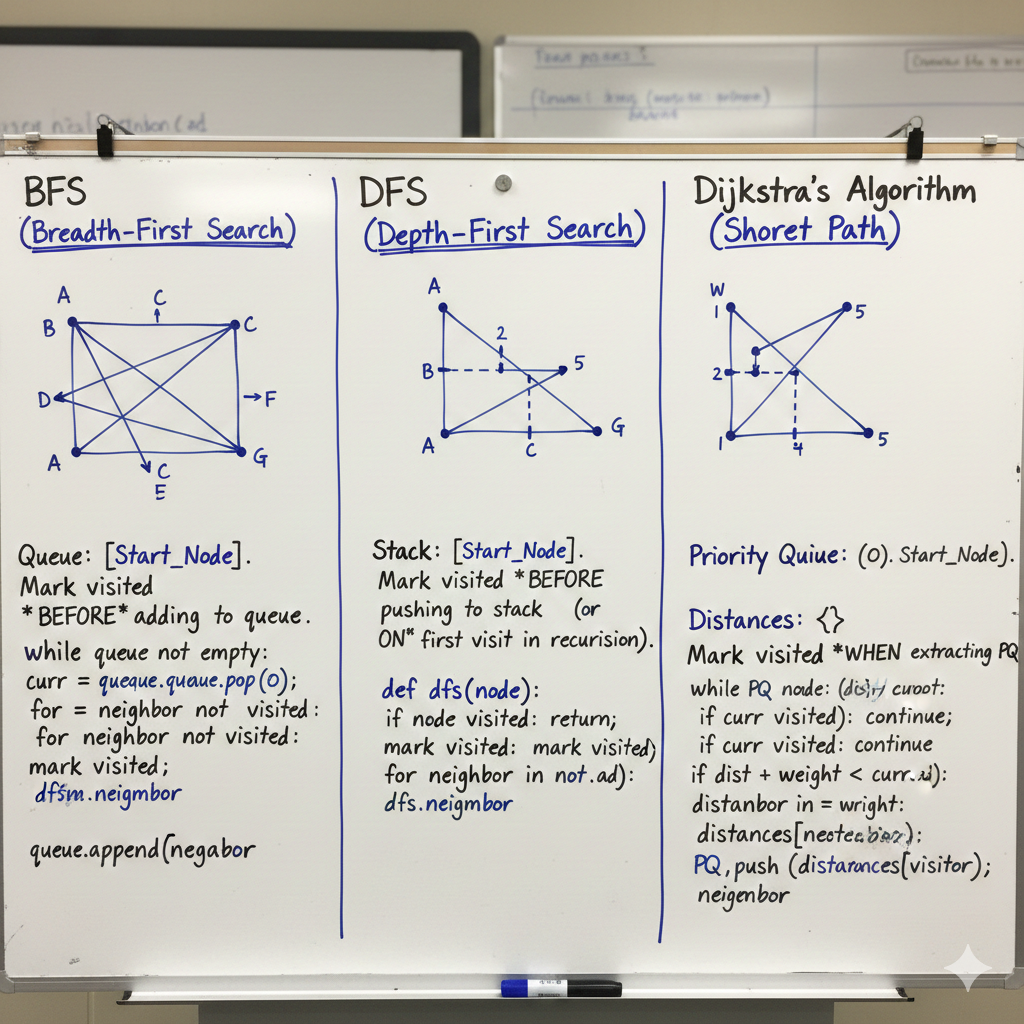 BFS
(Breadth-First Search)
A
C
B
C
D
F
A
G
C
E
Queue: [Start_Node].
Mark visited
*BEFORE* adding to queue.
while queue not empty:
curr = queque.quaue.pop(0);
for = neighbor not visited:
for neighbor not visited:
mark visited;
queue.append(negabor
DFS
(Depth-First Search)
A
2
B
5
A
C
G
Stack: [Start_Node].
Mark visited *BEFORE
pushing to stack (or
ON* first visit in recurision).
def dfs(node):
if node visited: return;
mark visited: mark visited)
for neighbor in not.ad):
dfs.neigmbor
Dijkstra's Algorithm
(Shoret Path)
W
1
5
2
1
4
5
Priority Quiue: (0). Start_Node).
Distances: {}
Mark visited *WHEN extracting PQ
while PQ node:
if curr visited): continue;
if curr visited: continue
if dist + weight <
distanbor in = wright:
PQ, push (distarances[visitor);
neigenbor